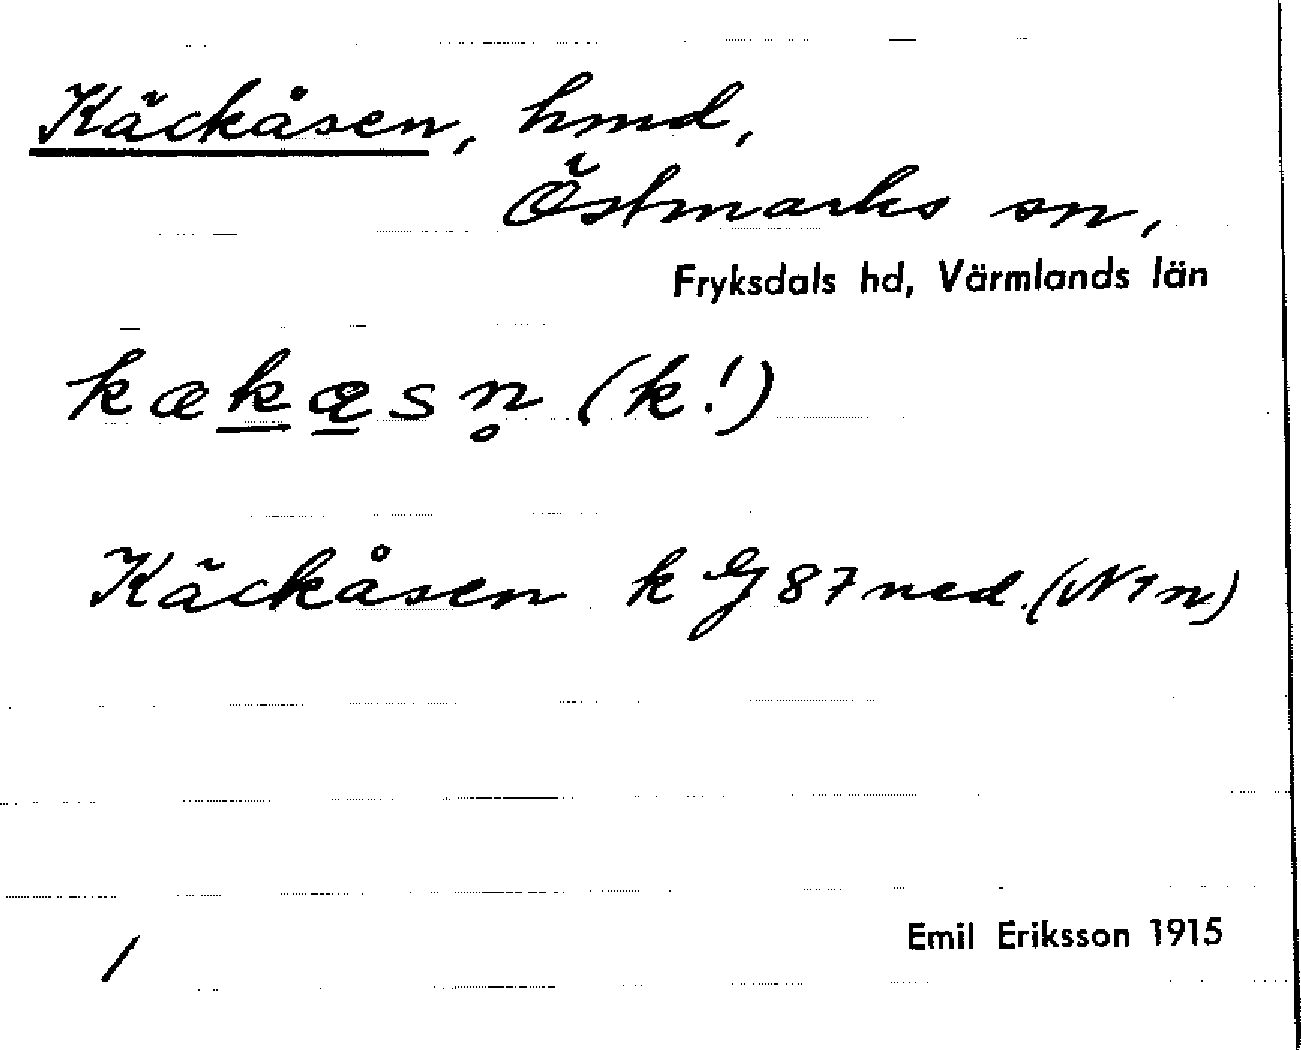 Käckåsen, hmd,
Östmarks sn,
Fryksdals hd, Värmlands län
kækæsn̥ (k!)
Käckåsen k G 87 ned. (N1n)
Emil Eriksson 1915
/